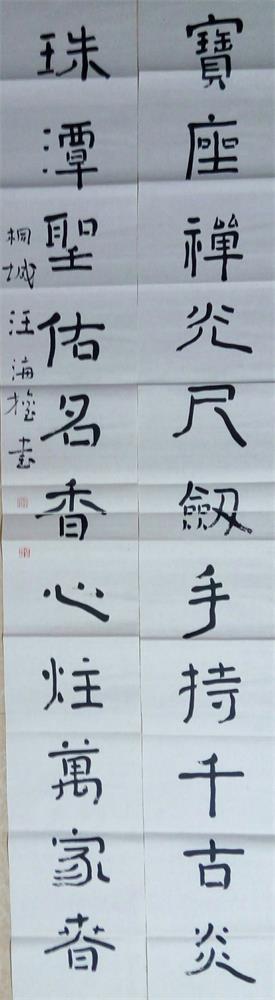 寶座禪光尺劔手持千古炎
珠潭聖佑名香心炷萬家春
桐城汪海書